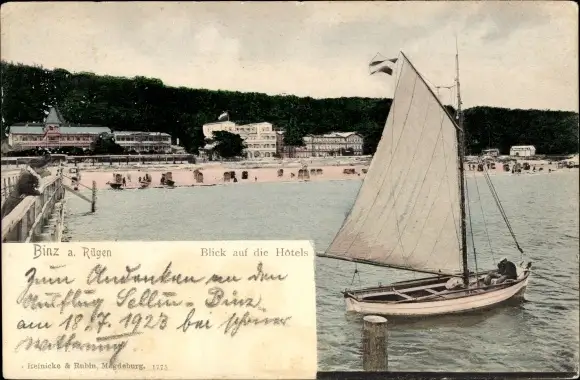 Binz a. Rügen
Blick auf die Hôtels
Zum Andenken an den
Ausflug Sellin - Binz
am 18.7.1923 bei schöner
Witterung.
Reinicke & Rubin, Magdeburg. 1173